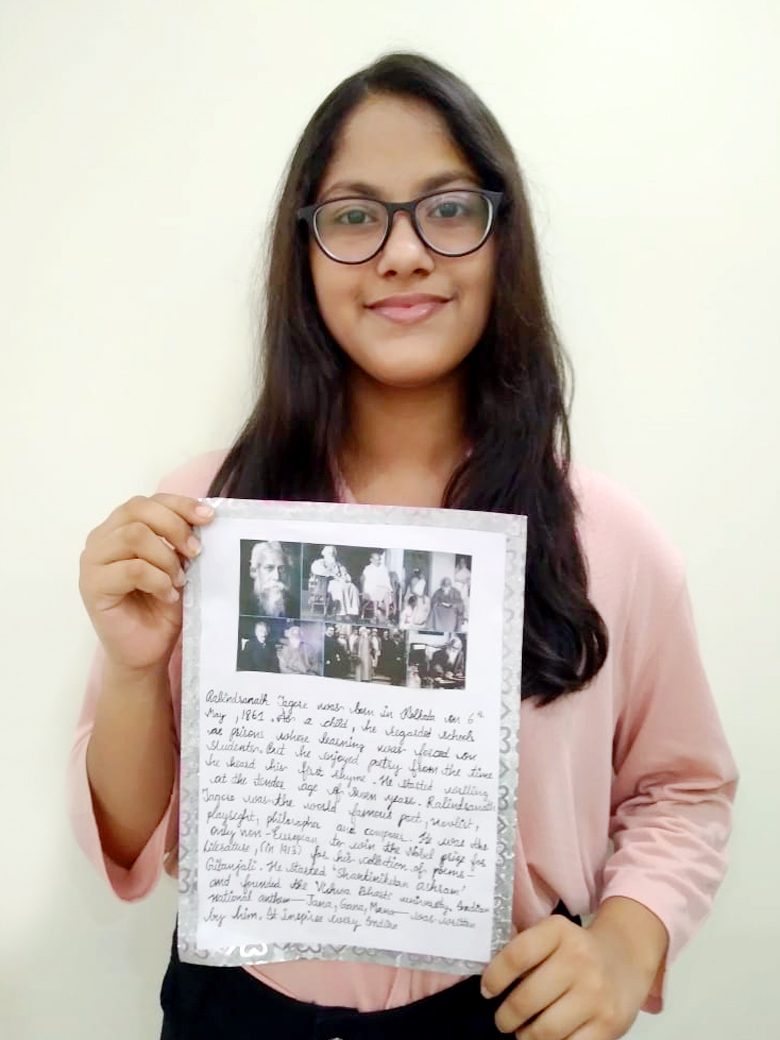 Rabindranath Tagore was born in Kolkata on 6th
May, 1861. As a child, he regarded schools
as prisons where learning was forced on
students. But he enjoyed poetry from the time
he heard his first rhyme. He started writing
at the tender age of seven years. Rabindranath
Tagore was the world famous poet, novelist,
playright, philosopher and composer. He was the
only non-European to win the Nobel prize for
literature, (in 1913) for his collection of poems-
Gitanjali'. He started 'Shantiniketan ashram'
and founded the Vishva Bharti university. Indian
national anthem- Jana, Gana, Mana- was written
by him. It inspires every Indian